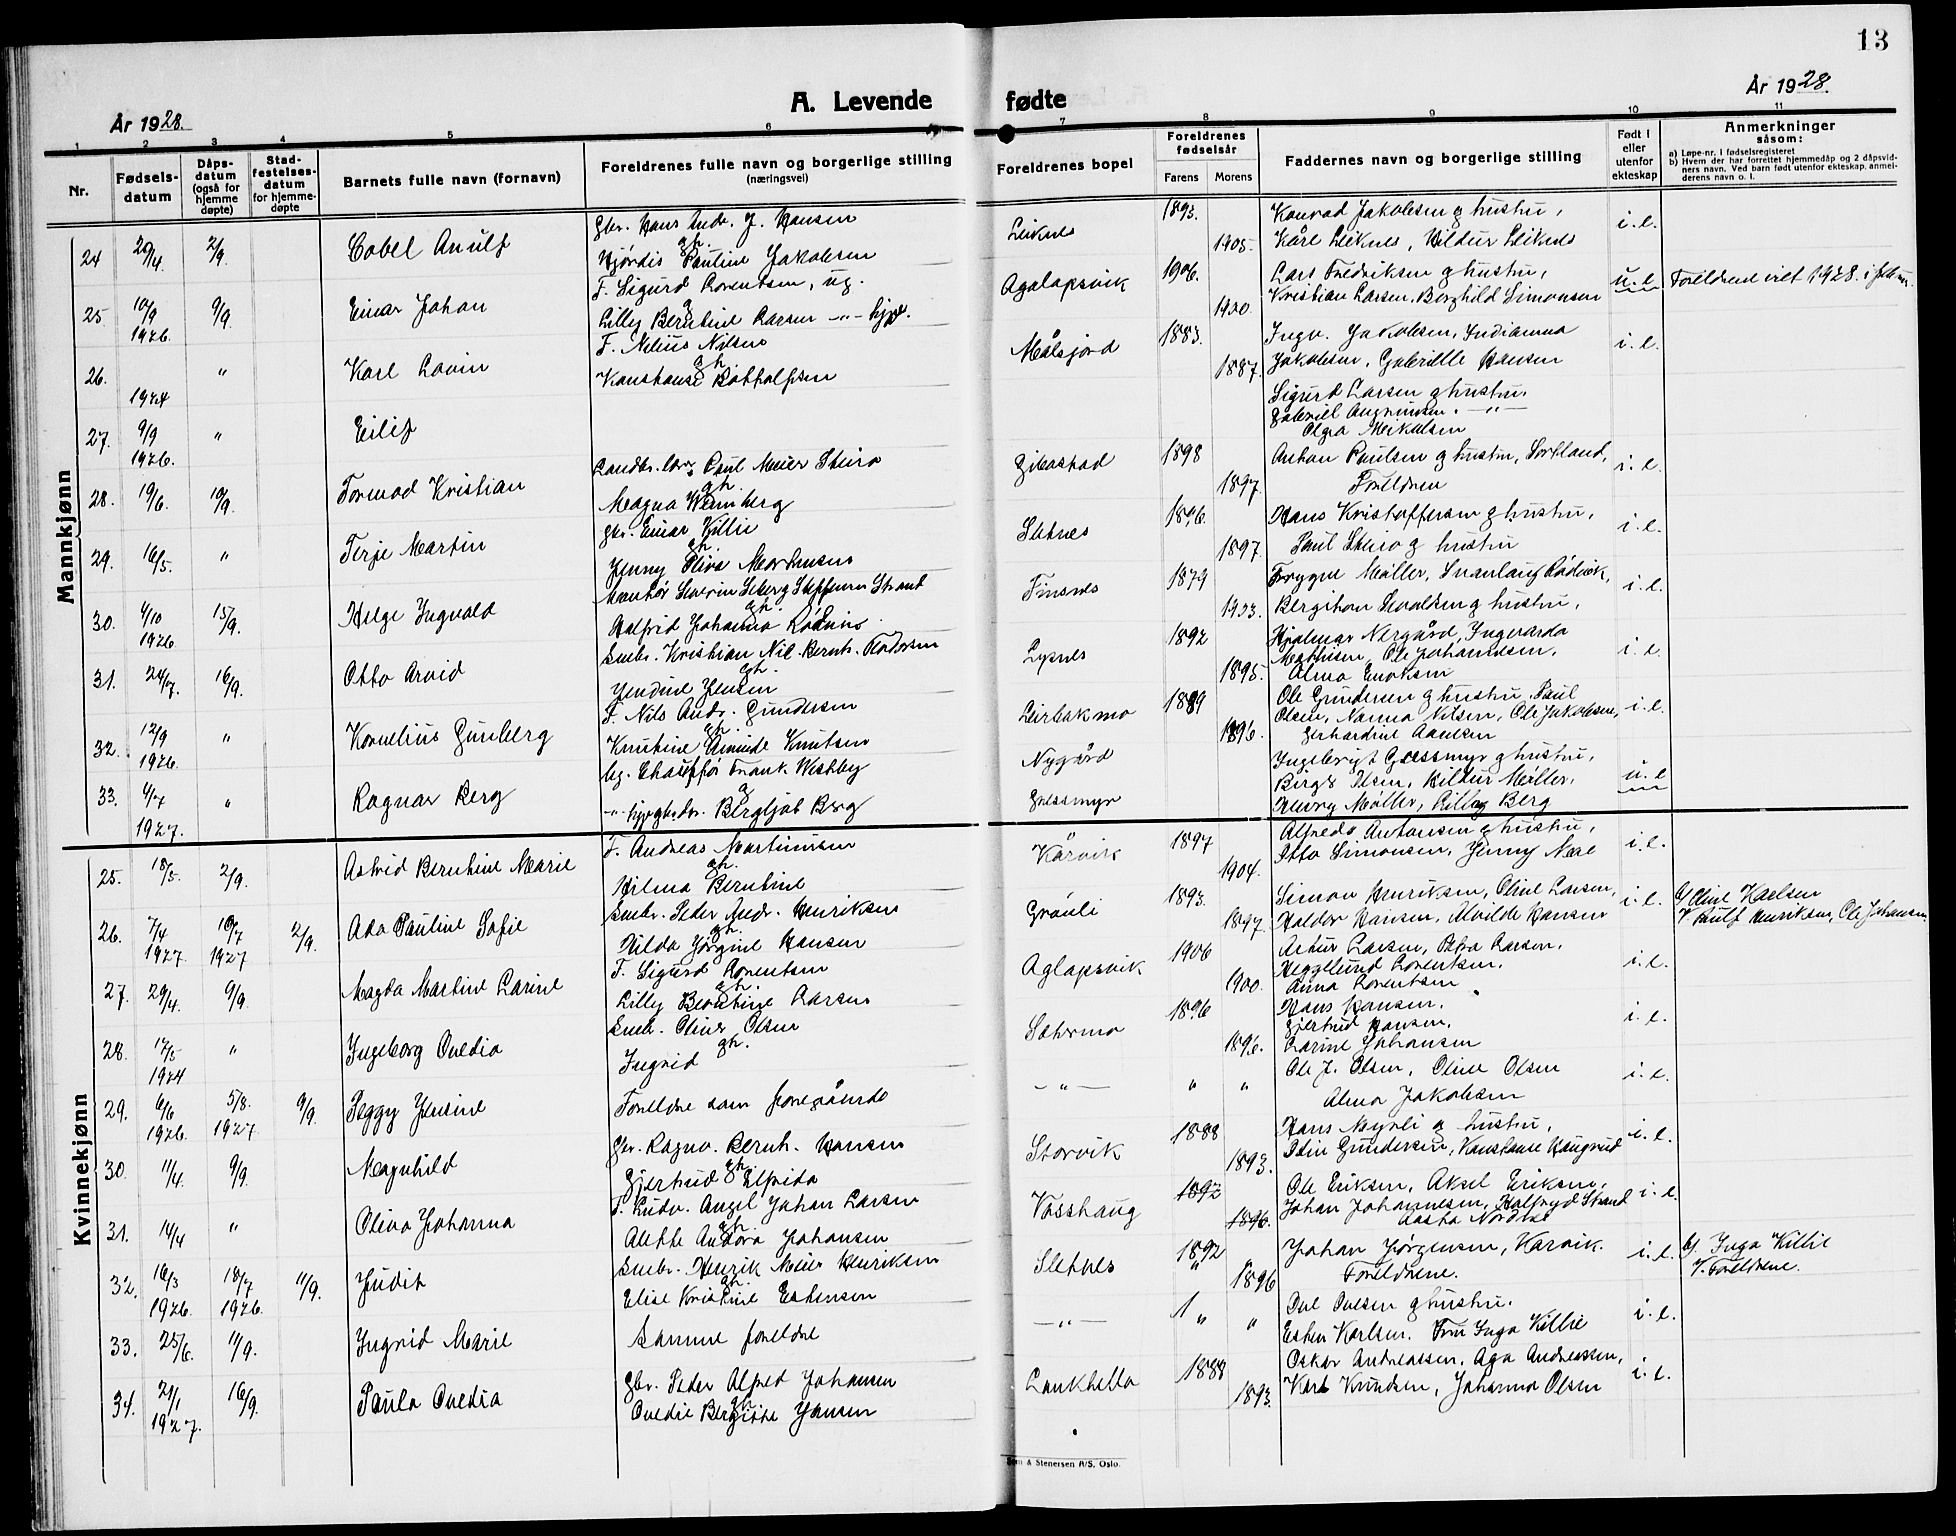 13
År 1928.
A. Levende
fødte
År 1928.
1
2
3
4
5
6
7
8
9
10
11
Nr.
Fødsels-
datum
Dåps-
datum
(også for
hjemme
døpte)
Stad-
festelses-
datum
for hjemme-
døpte
Barnets fulle navn (fornavn)
Foreldrenes fulle navn og borgerlige stilling
(næringsvei)
Foreldrenes bopel
Foreldrenes
fødselsår
Farens
Morens
Faddernes navn og borgerlige stilling
Født i
eller
utenfor
ekteskap
Anmerkninger
såsom:
a) Løpe-nr. i fødselsregisteret
b) Hvem der har forrettet hjemmedåp og 2 dåpsvid-
ners navn. Ved barn født utenfor ekteskap, anmel-
derens navn o. l.
Mannkjønn
24 20/4. 2/9. Cobel Anulf
Gbr. Hans Andr. J. Hansen
gh.
Hjørdis Pautine Jakobsen
Leiknes 1893. 1905.
Konrad Jakobsen g hustru,
Kåre Leiknes, Hildur Leiknes
i. e.
25 10/9 1926. 9/9. Einar Johan
F. Sigurd Lorentsen, ug.
g
Lilly Berntine Larsen -"- hjpe.
Aglapsvik 1906. 1900.
Lars Fredriksen g hustru,
Kristian Larsen, Borghild Simonsen
u. e.
Foreldrene viet 1928.
26. 1924 " Karl Lovin
F. Nelius Nilsens
gh.
Konstanse Bottolfsen
Målsjord 1883. 1887.
Ingv. Jakobsen, Indianna
Jakobsen, Gabrielle Hansen
i. e.
27. 9/9 1926. " Eilif
Sigurd Larsen g hustru.
Gabriel -"-
Olga Mikalsen
28. 19/6. 10/9. Tormod Kristian
Landbr. lærer Paul Meier Skuro
gh.
Magna Wennberg
Gibostad 1898 1897.
Anton Paulsen g hustru, Sortland,
Foreldrene
i. e.
29. 16/5. " Terje Martin
Gbr. Einar Killie
gh.
Jenny Oliva Marthinsen
Sletnes 1896. 1897.
Hans Kristoffersen g hustru,
Paul Skuro g hustru
i. e.
30. 4/10 1926 15/9. Helge Ingvald
Steffensen Strand
gh.
Halfrid Johanna
Finsnes 1879 1903.
Trygve Møller,
g hustru,
i. e.
31. 24/7. 16/9. Otto Arvid
Småbr. Kristian Nil. Bernh. Pedersen
gh.
Jendine Jensen
Lysnes 1892 1895.
Hjalmar Nergård, Ingvarda
Mathisen, Ole Johannesen,
Alma Enoksen
i. e.
32. 12/9 1926. " Kornelius Gunberg
F. Nils Andr. Gundersen
gh.
Knutine Aminde Knutsen
Leirbakmo 1889 1896.
Ole Gundersen g hustru, Paul
Olsen, Nanna Nilsen, Ole Jakobsen,
Gerhardine
i. e.
33. 4/7 1927. " Ragnar Berg
Ug. Chauffør Frank Westby
g
-"- Bergljot Berg
Nygård
Grasmyr
Ingebrigt Grasmyr g hustru,
Birger Olsen, Hildur Møller,
Henry Møller, Berg
u. e
Kvinnekjønn
25. 18/5. 2/9. Astrid Berntine Marie
F. Andreas Martinusen
gh.
Hilma Berntine
Kårvik 1897 1904.
Alfreds Antonsen g hustru,
Otto Simonsen, Jenny
i. e.
26. 7/4 1927. 10/7 1927 2/9. Ada Pauline Sofie
Småbr. Peder Andr. Henriksen
gh.
Hilda Jørgine Hansen
Grønli 1893. 1897.
Simon Henriksen, Oline Larsen,
Haldor Hansen, Alvilde Hansen
i. e.
G/ Oline Karlsen
V. Henriksen, Ole Johansen
27. 29/4. 9/9. Magda Martine Larine
F. Sigurd Lorentsen
gh.
Lilly Berntine Larsen
Aglapsvik 1906 1900.
Artur Larsen, Petra Larsen,
Hegglund Lorentsen,
Anna Lorentsen
i. e.
28. 17/5 1924 " Ingeborg Ovedia
Småbr. Oliver Olsen
gh.
Ingrid
Sætermo 1896 1896.
Hans Hansen,
Gjertrud Hansen,
Larine Johansen
i. e.
29. 6/6 1926. 5/8. 1927. 9/9. Peggy Jensine
Foreldre som foregående
-"- " "
Ole J. Olsen, Oline Olsen
Alma Jakobsen
i. e.
30. 11/4. 9/9. Magnhild
Gbr. Ragnv. Bernh. Hansen
gh.
Gjertrud Elfrida
Storvik 1888 1893.
Hans Myrli g hustru,
Odin Gundersen, Konstanse Haugrud
i. e.
31. 14/4 " Oliva Johanna
F. Ludv. Angel Johan Larsen
gh.
Alette Andora Johansen
Vasshaug 1892 1896.
Ole Eriksen, Aksel Eriksen,
Johan Johannesen, Halfryd Strand
Aasta Nordvik
i. e.
32. 16/3 1926 18/7 1926. 11/9. Judit
Småbr. Henrik Meier Henriksen
gh.
Elise Kristine Estensen
Sletnes 1892 " 1896
Johan Jørgensen, Kårvik.
Foreldrene.
i. e.
G. Inga Killie
V. Foreldrene.
33. 25/6. 11/9. Ingrid Marie
Samme foreldre
-"- " "
Ove Ovesen g hustru.
Esten Karlsen. Fru Inga Killie
i. e.
34. 21/1 1927. 16/9. Paula Ovedia
Gbr. Peder Alfred Johansen
gh.
Ovedie Bergitte Jansen
Lankhella 1888 1893.
Oskar Andreassen, Aga Andreassen,
Karl Knudsen, Johanna Olsen
i. e.
& Stenersen A/S, Oslo.